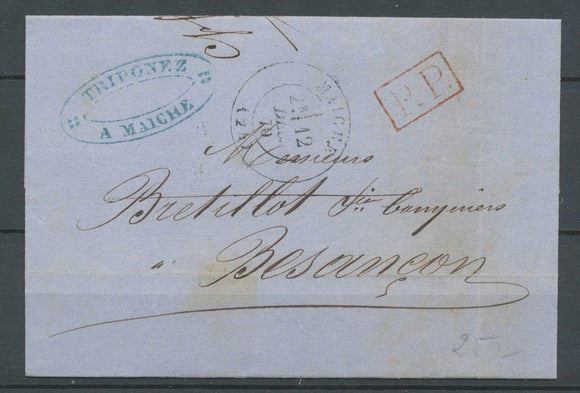 TRIPONEZ
A MAICHE
MAICHE
2E
12
DEC
70
(24)
P.P.
Messieurs
Bretillot & Cie banquiers
à Besançon
25 —